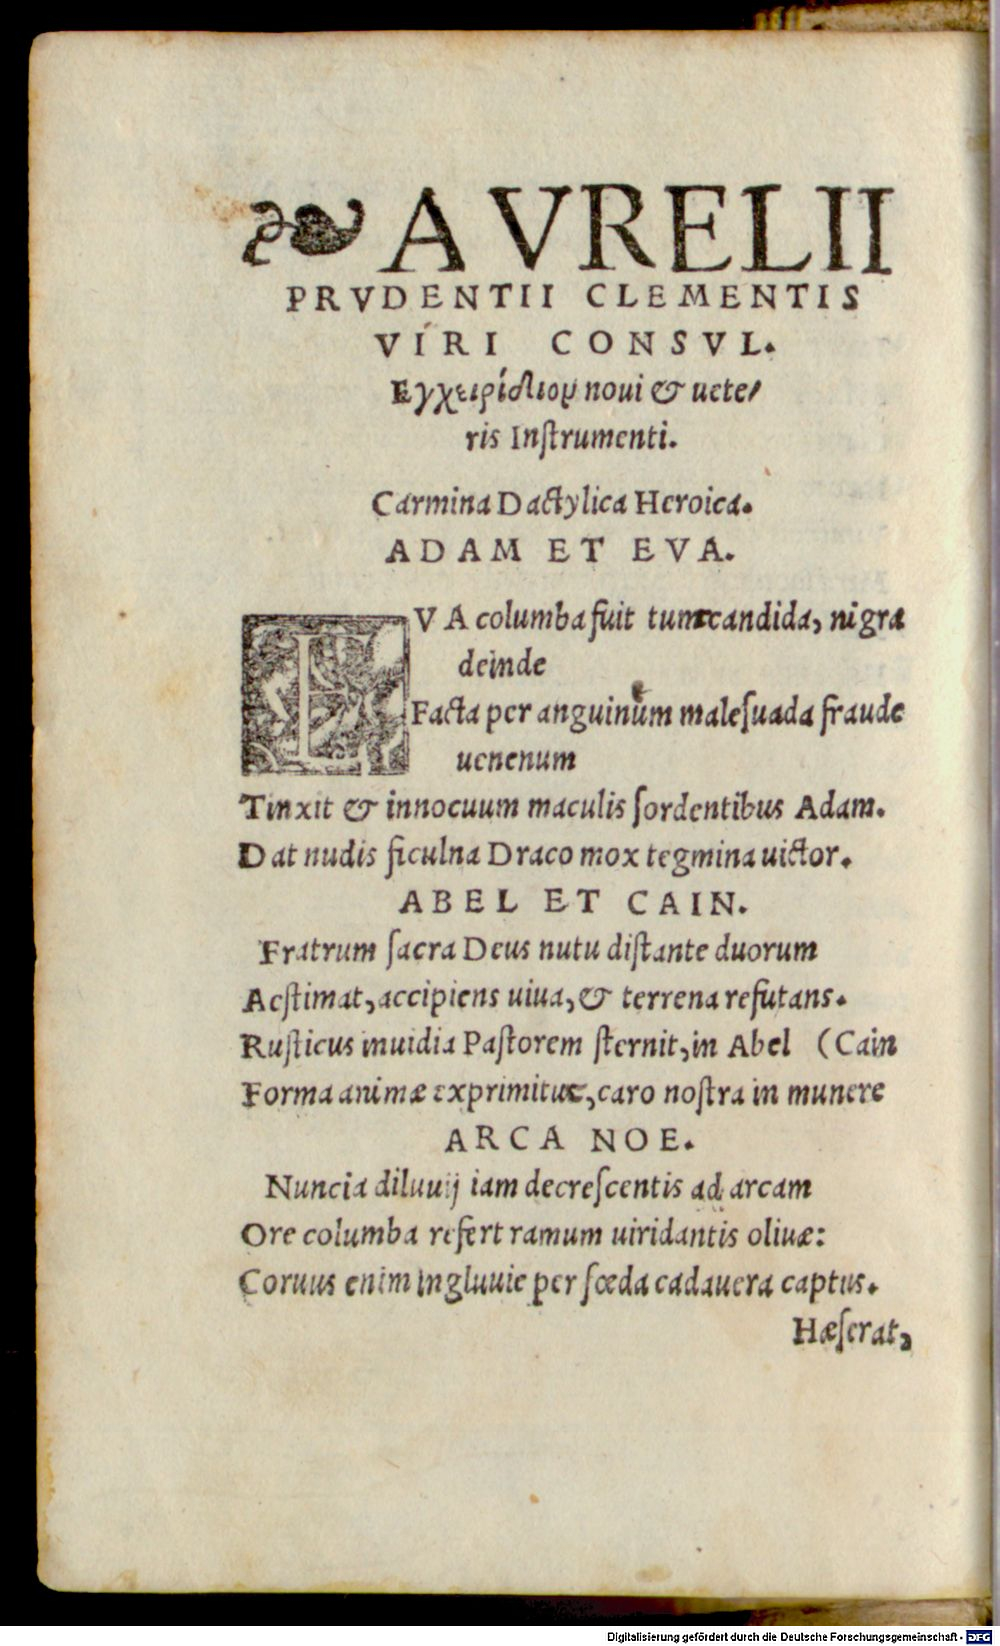 ❧ AVRELII
PRVDENTII CLEMENTIS
VIRI CONSVL.
Εγχειρίδιον noui & uete/
ris Inſtrumenti.
Carmina Dactylica Heroica.
ADAM ET EVA.
EVA columba fuit tum candida, nigra
deinde
Facta per anguinum maleſuada fraude
uenenum
Tinxit & innocuum maculis ſordentibus Adam.
Dat nudis ficulna Draco mox tegmina uictor.
ABEL ET CAIN.
Fratrum ſacra Deus nutu diſtante duorum
Aeſtimat, accipiens uiua, & terrena refutans.
Ruſticus inuidia Paſtorem ſternit, in Abel (Cain
Forma animæ exprimitur, caro noſtra in munere
ARCA NOE.
Nuncia diluuij iam decreſcentis ad arcam
Ore columba refert ramum uiridantis oliuæ:
Coruus enim ingluuie per fœda cadauera captus.
Hæſerat,
Digitalisierung gefördert durch die Deutsche Forschungsgemeinschaft - DFG